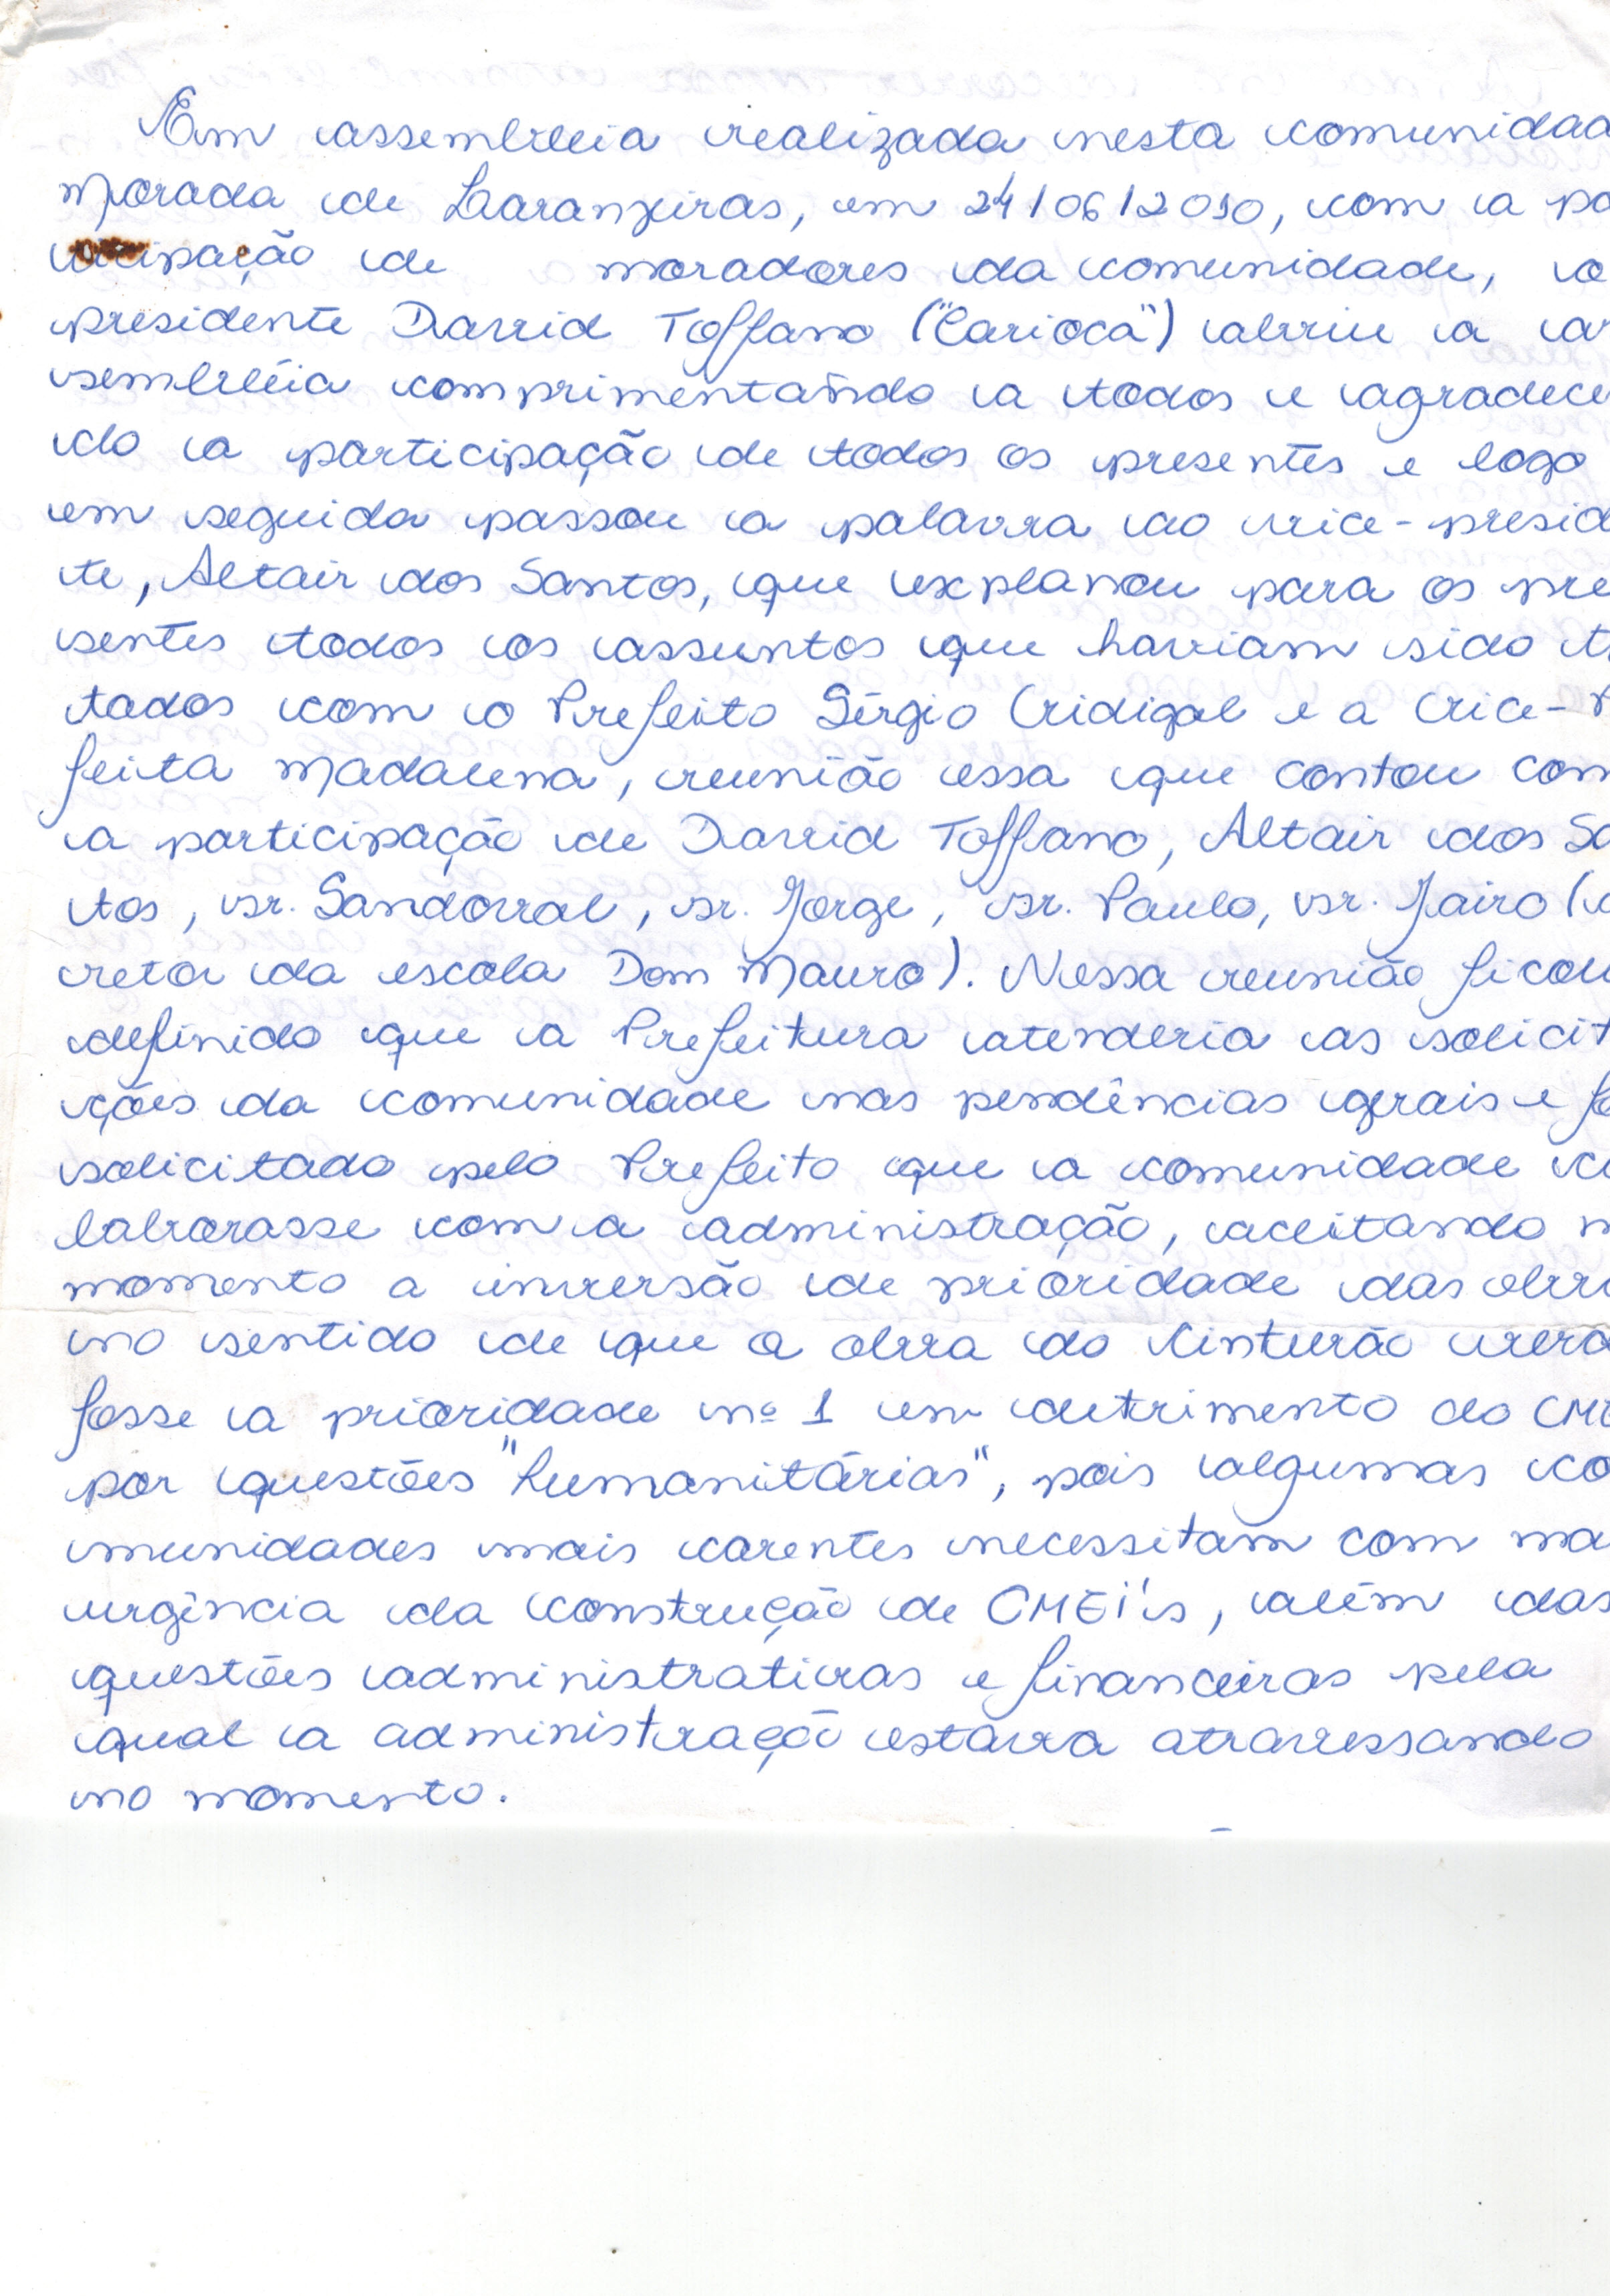 Em assembleia realizada nesta comunidad
Morada de Laranjeiras, em 24/06/2010, com a pa
ticipação de moradores da comunidade, o
presidente David Toffano ("Carioca") abriu a as
sembléia comprimentando a todos e agradece
do a participação de todos os presentes e logo
em seguida passou a palavra ao vice-presid
te, Altair dos Santos, que explanou para os pre
sentes todos os assuntos que haviam sido t
tados com o Prefeito Sérgio Vidigal e a Vice-P
feita Madalena, reunião essa que contou com
a participação de David Toffano, Altair dos Sa
tos, sr. Sandoval, sr. Jorge, sr. Paulo, sr. Jairo (
cretor da escola Dom Mauro). Nessa reunião ficou
definido que a Prefeitura atenderia as solicit
ções da comunidade nas pendências gerais e fo
solicitado pelo Prefeito que a comunidade co
laborasse com a administração, aceitando n
momento a inversão de prioridade das obra
no sentido de que a obra do Cinturão verd
fosse a prioridade nº 1 em detrimento do CME
por questões "humanitárias", pois algumas co
munidades mais carentes necessitam com ma
urgência da construção de CMEI's, além das
questões administrativas e financeiras pela
qual a administração estava atravessando
no momento.